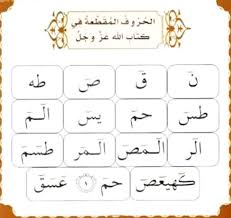 الحُرُوفُ المُقَطَّعَةُ فِي
كِتَابِ اللهِ عَزَّ وَجَلَّ
نَ قَ صَ طه
طسَ حمَ يسَ الَمَ
الَر الَمَصَ الَمَر طسَمَ
كَهيعَصَ حمَ ۝١ عَسَقَ